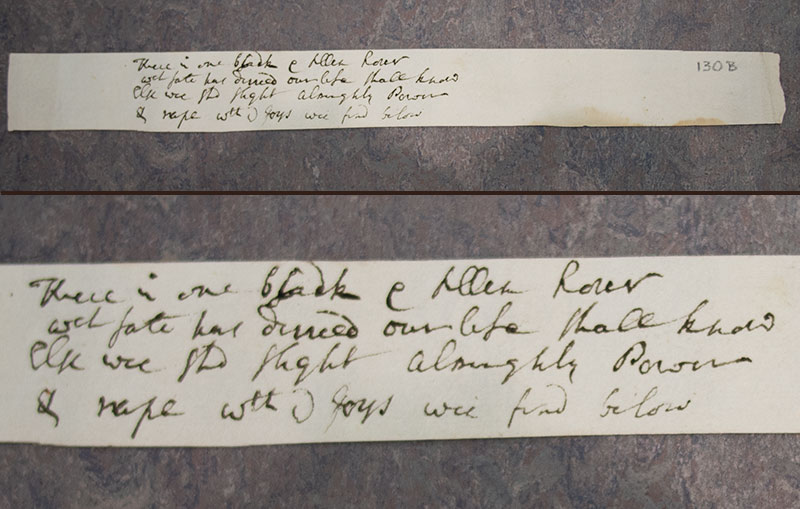 There is one black & sullen hower
wch fate has decreed our life shall know
Else wee shd slight almighty Power
& rape wth joys wee find below
130B
There is one black & sullen hower
wch fate has decreed our life shall know
Else wee shd slight almighty Power
& rape wth joys wee find below